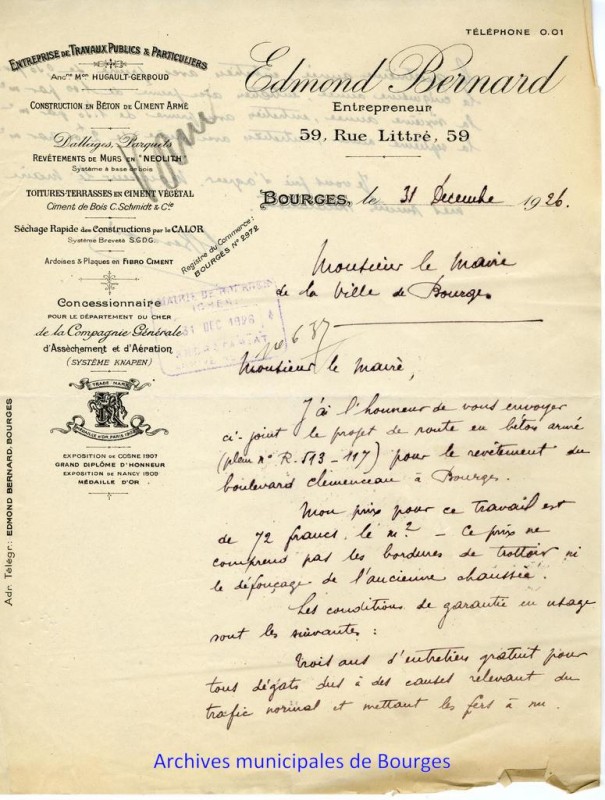 TÉLÉPHONE 0.01
ENTREPRISE DE TRAVAUX PUBLICS & PARTICULIERS
Anc.ne M.on HUGAULT-GERBOUD
CONSTRUCTION EN BÉTON DE CIMENT ARMÉ
Dallages, Parquets
REVÊTEMENTS DE MURS EN "NEOLITH"
Système à base de bois
TOITURES-TERRASSES EN CIMENT VÉGÉTAL
Ciment de Bois C. Schmidt & C.ie
Séchage Rapide des Constructions par le CALOR
Système Breveté S.G.D.G.
Ardoises & Plaques en FIBRO CIMENT
Concessionnaire
POUR LE DÉPARTEMENT DU CHER
de la Compagnie Générale
d'Assèchement et d'Aération
(SYSTÈME KNAPEN)
TRADE MARK
K
MÉDAILLE D'OR PARIS
EXPOSITION DE COSNE 1907
GRAND DIPLÔME D'HONNEUR
EXPOSITION DE NANCY 1909
MÉDAILLE D'OR
Adr. Télégr.: EDMOND BERNARD. BOURGES
Edmond Bernard
Entrepreneur
59, Rue Littré, 59
BOURGES, le 31 Décembre 1926.
Registre du Commerce:
BOURGES N° 2972
MAIRIE DE
31 DEC 1926
SECRÉTARIAT
N° 637
Monsieur le Maire
de la Ville de Bourges
Monsieur le Maire,
J'ai l'honneur de vous envoyer
ci-joint le projet de route en béton armé
(plan n° R. 513 - 117) pour le revêtement du
boulevard Clémenceau à Bourges.
Mon prix pour ce travail est
de 72 francs le m² - Ce prix ne
comprend pas les bordures de trottoir ni
le défonçage de l'ancienne chaussée.
Les conditions de garantie en usage
sont les suivantes :
Trois ans d'entretien gratuit pour
tous dégâts dus à des causes relevant du
trafic normal et mettant les fers à nu.
Archives municipales de Bourges